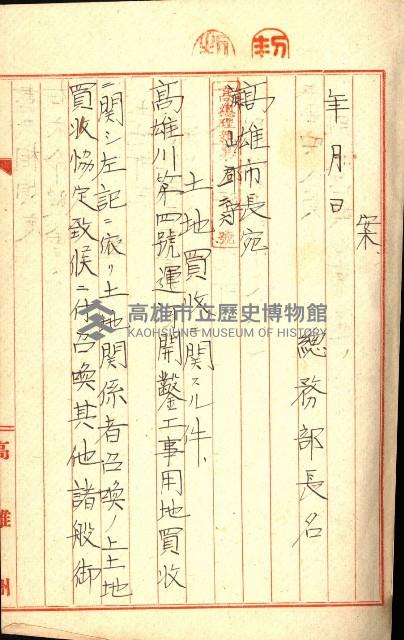 案
年月日
總務部長名
高雄市長宛
土地買收ニ關スル件、
高雄川第四號運河開鑿工事用地買收
ニ關シ左記ニ依リ土地關係者召喚ノ上土地
買收協定致候ニ付召喚其他諸般御
高雄州
高雄市立歷史博物館
KAOHSIUNG MUSEUM OF HISTORY